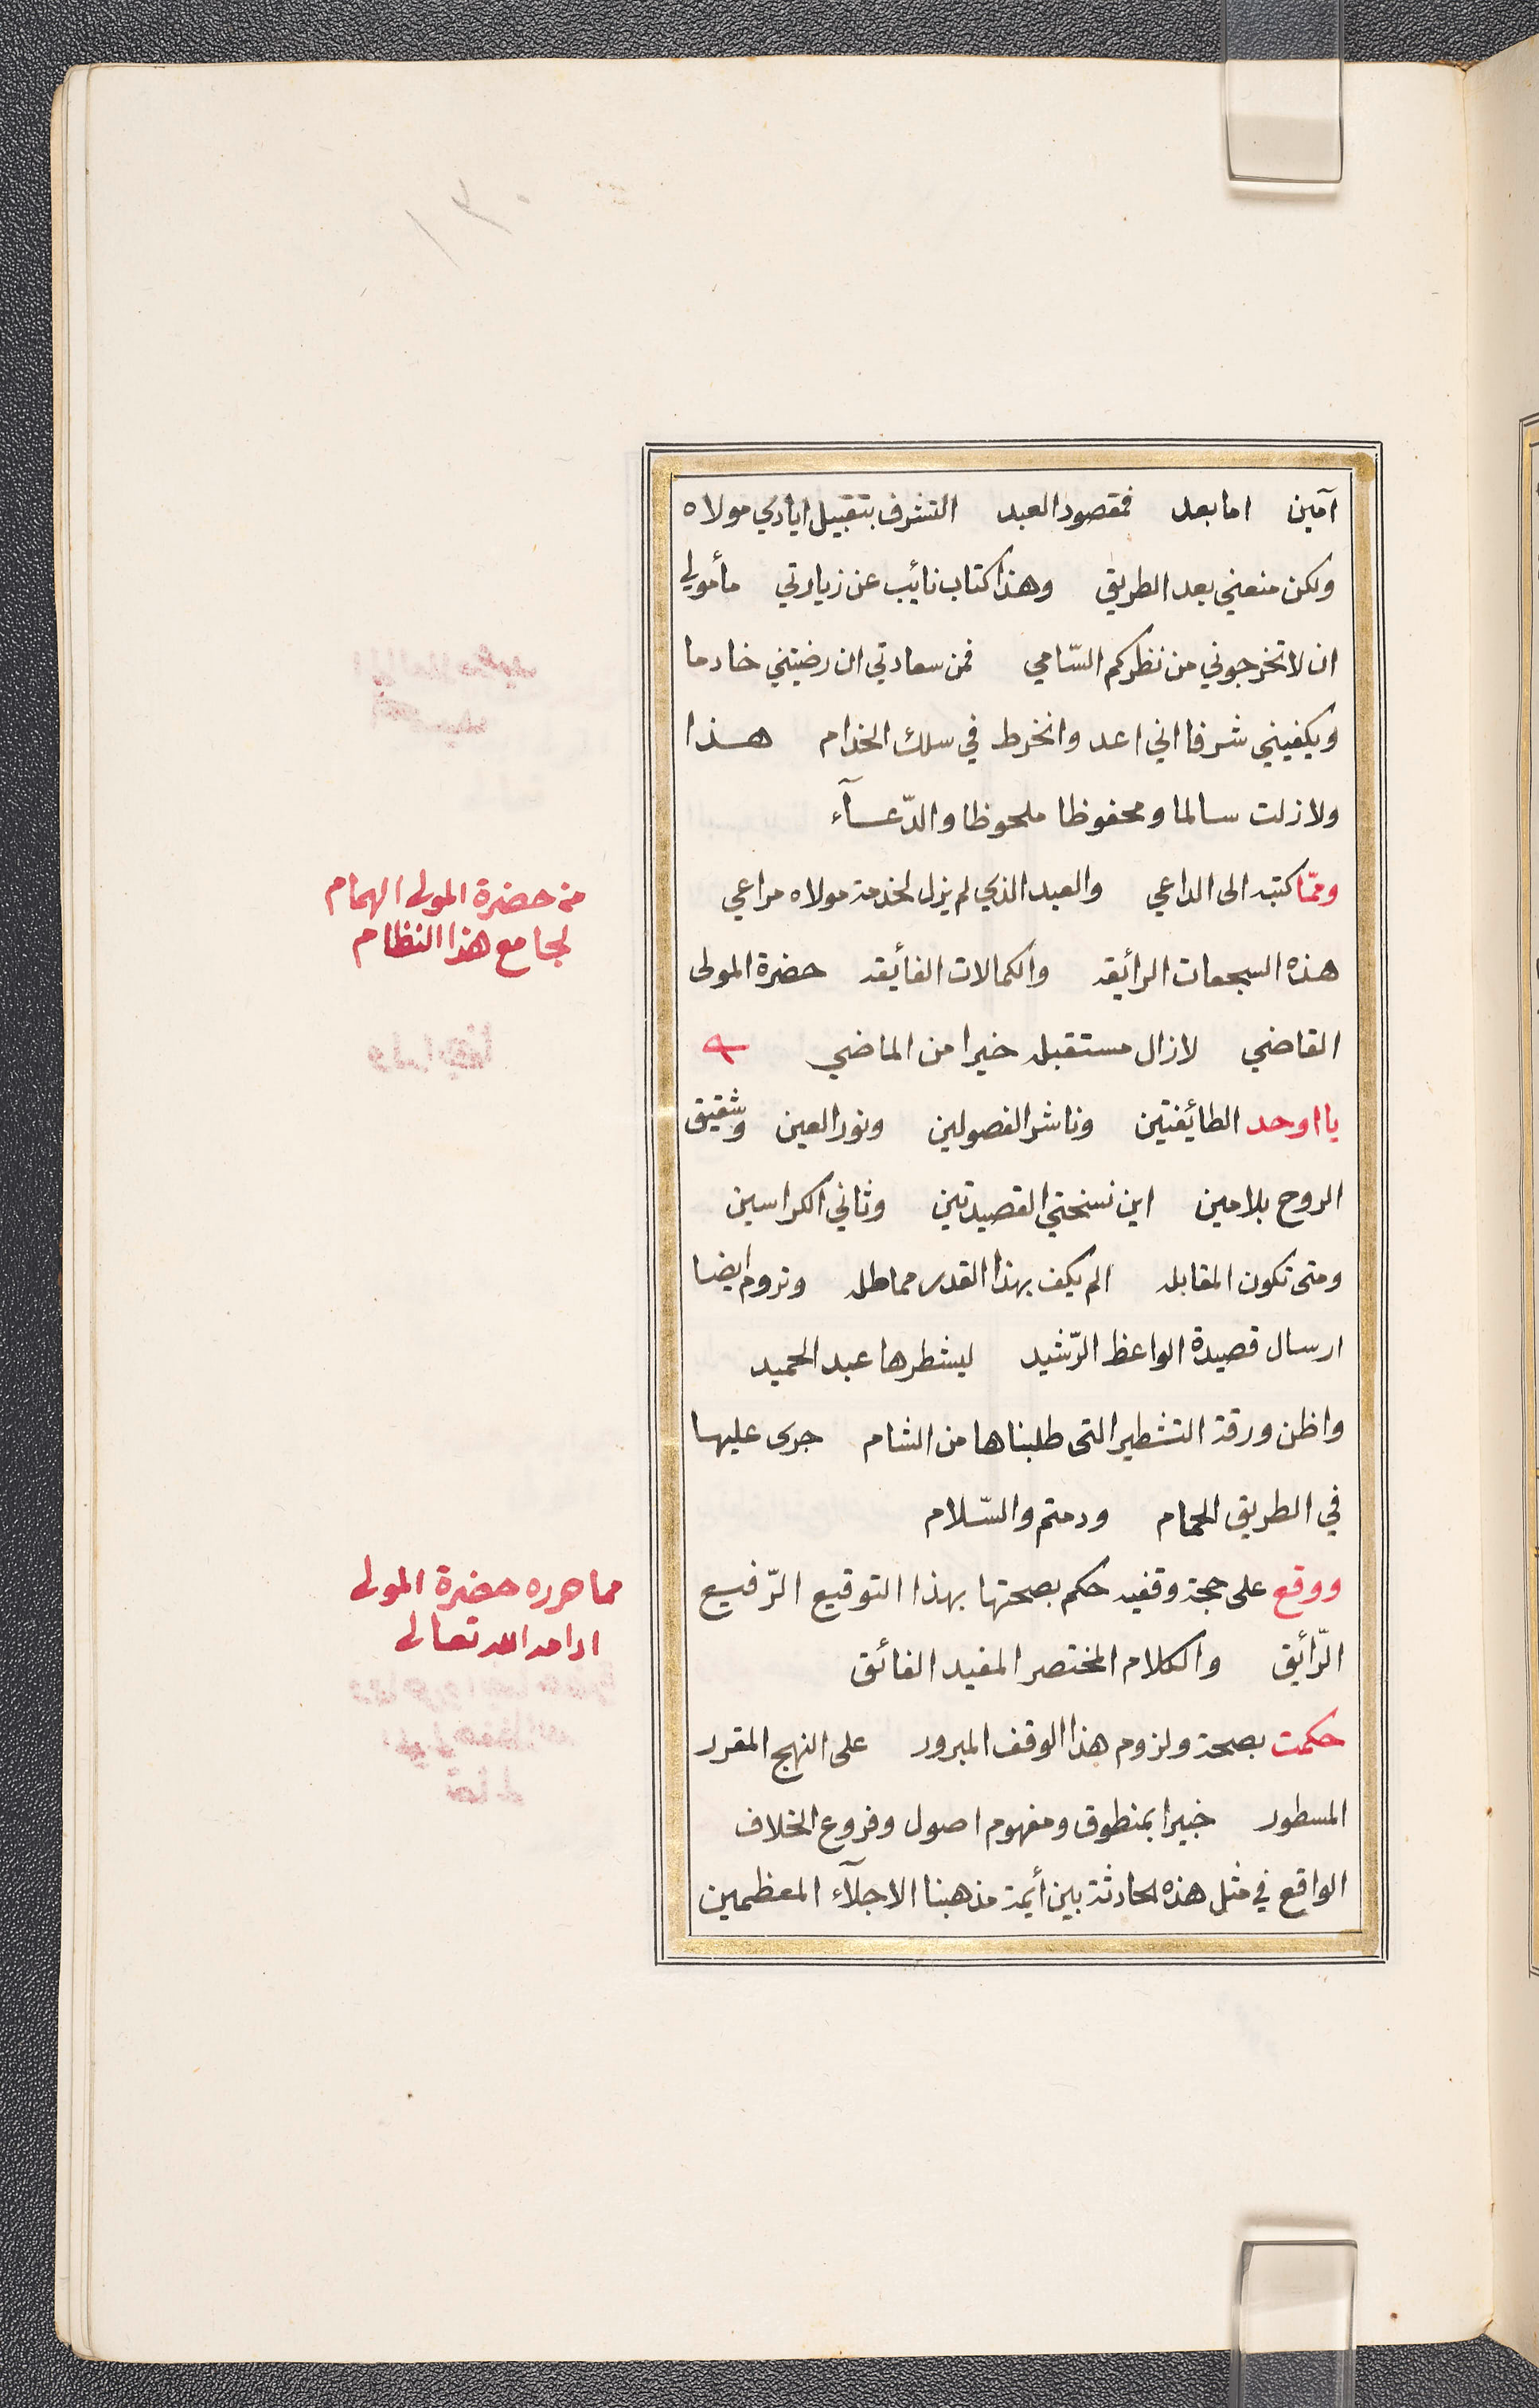 آمين اما بعد فمقصود العبد التشرف بتقبيل ايادي مولاه
ولكن منعني بعد الطريق وهذا كتاب نائب عن زيارتي مأمولي
ان لا تخرجوني من نظركم السّامي فمن سعادتي ان رضيتني خادما
ويكفيني شرفا اني اعد وانخرط في سلك الخدام هذا
ولازلت سالما ومحفوظا ملحوظا والدّعآء
وممّا كتبه الى الداعي والعبد الذي لم يزل لخدمة مولاه مراعي
من حضرة المولى الهمام
لجامع هذا النظام
هذه السجعات الرائقه والكمالات الفائقه حضرة المولى
القاضي لازال مستقبله خيرا من الماضي
يا اوحد الطائفتين وناشر الفصولين ونور العين وشقيق
الروح بلا مين اين نسختي القصيدتين وثاني الكراسين
ومتى تكون المقابله الم يكف بهذا القدر مماطله ونروم ايضا
ارسال قصيدة الواعظ الرّشيد ليشطرها عبد الحميد
واظن ورقة التشطير التى طلبناها من الشام جرى عليها
في الطريق الحمام ودمتم والسّلام
ووقع على حجة وقفيه حكم بصحتها بهذا التوقيع الرّفيع
مما حرره حضرة المولى
ادامه الله تعالى
الرّائق والكلام المختصر المفيد الفائق
حكمت بصحة ولزوم هذا الوقف المبرور على النهج المقرر
المسطور خبيرا بمنطوق ومفهوم اصول وفروع الخلاف
الواقع في مثل هذه الحادثة بين أيمة مذهبنا الاجلآء المعظمين